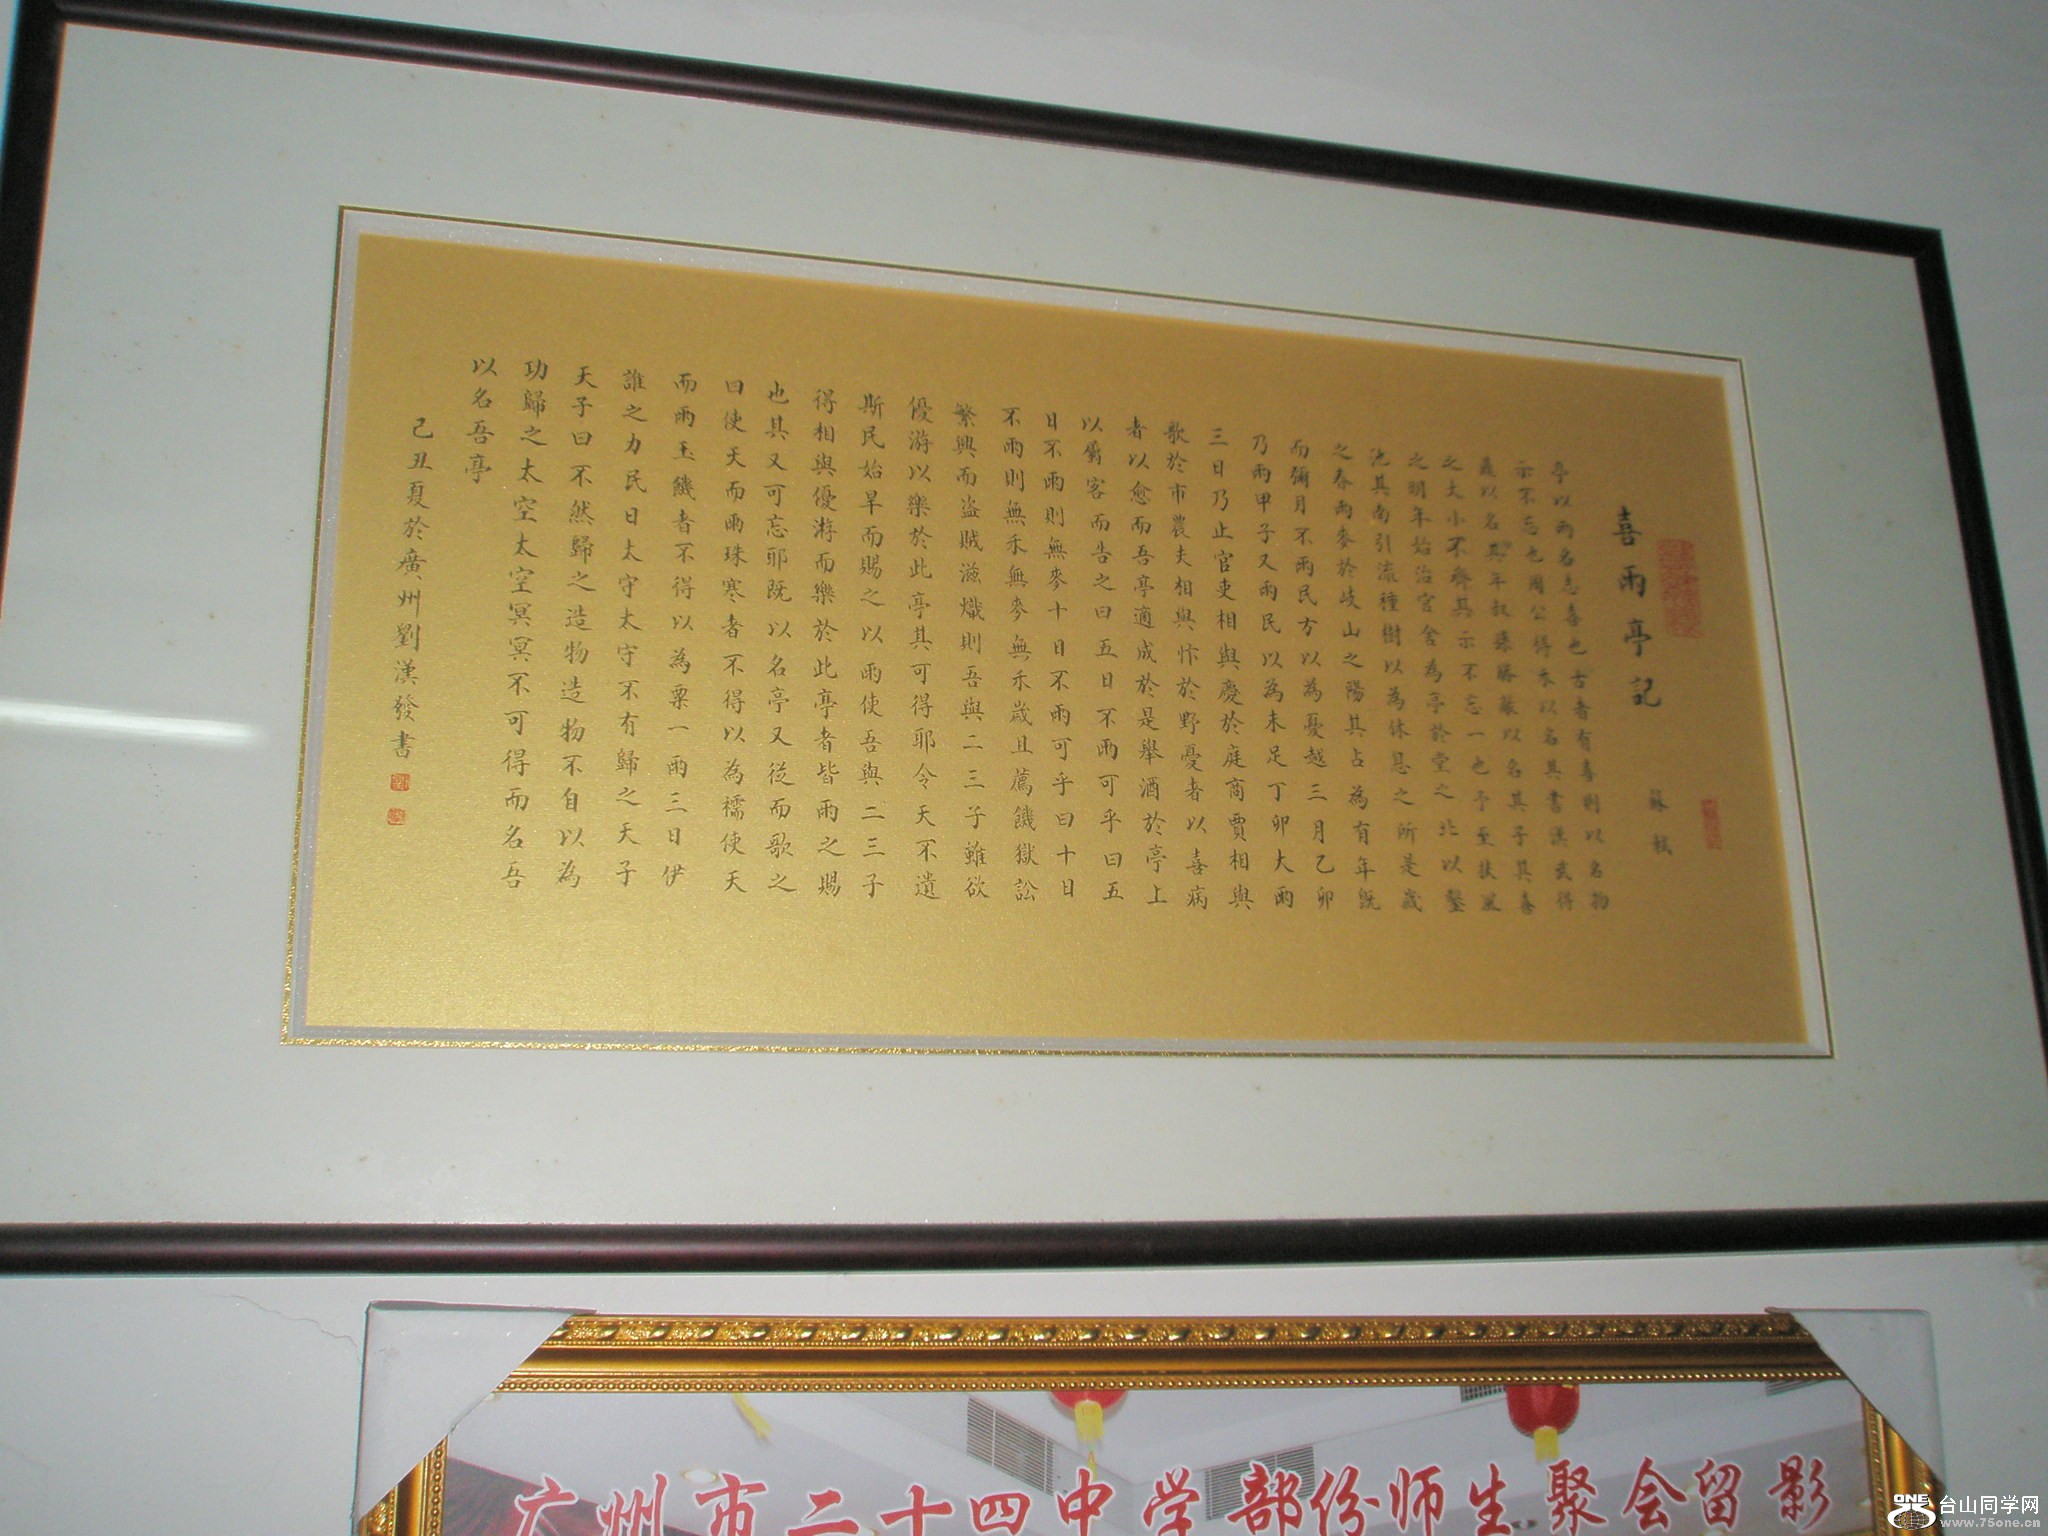 喜雨亭記
蘇軾
亭以雨名志喜也古者有喜則以名物
示不忘也周公得禾以名其書漢武得
鼎以名其年叔孫勝敵以名其子其喜
之大小不齊其示不忘一也予至扶風
之明年始治官舍為亭於堂之北以鑿
池其南引流種樹以為休息之所是歲
之春雨麥於岐山之陽其占為有年既
而彌月不雨民方以為憂越三月乙卯
乃雨甲子又雨民以為未足丁卯大雨
三日乃止官吏相與慶於庭商賈相與
歌於市農夫相與忭於野憂者以喜病
者以愈而吾亭適成於是舉酒於亭上
以屬客而告之曰五日不雨可乎曰五
日不雨則無麥十日不雨可乎曰十日
不雨則無禾無麥無禾歲且薦饑獄訟
繁興而盜賊滋熾則吾與二三子雖欲
優游以樂於此亭其可得耶今天不遺
斯民始旱而賜之以雨使吾與二三子
得相與優游而樂於此亭者皆雨之賜
也其又可忘耶既以名亭又從而歌之
曰使天而雨珠寒者不得以為襦使天
而雨玉饑者不得以為粟一雨三日伊
誰之力民曰太守太守不有歸之天子
天子曰不然歸之造物造物不自以為
功歸之太空太空冥冥不可得而名吾
以名吾亭
己丑夏於廣州劉漢發書
广州市二十四中学部份师生聚会留影
ONE 台山同学网
www.75one.cn